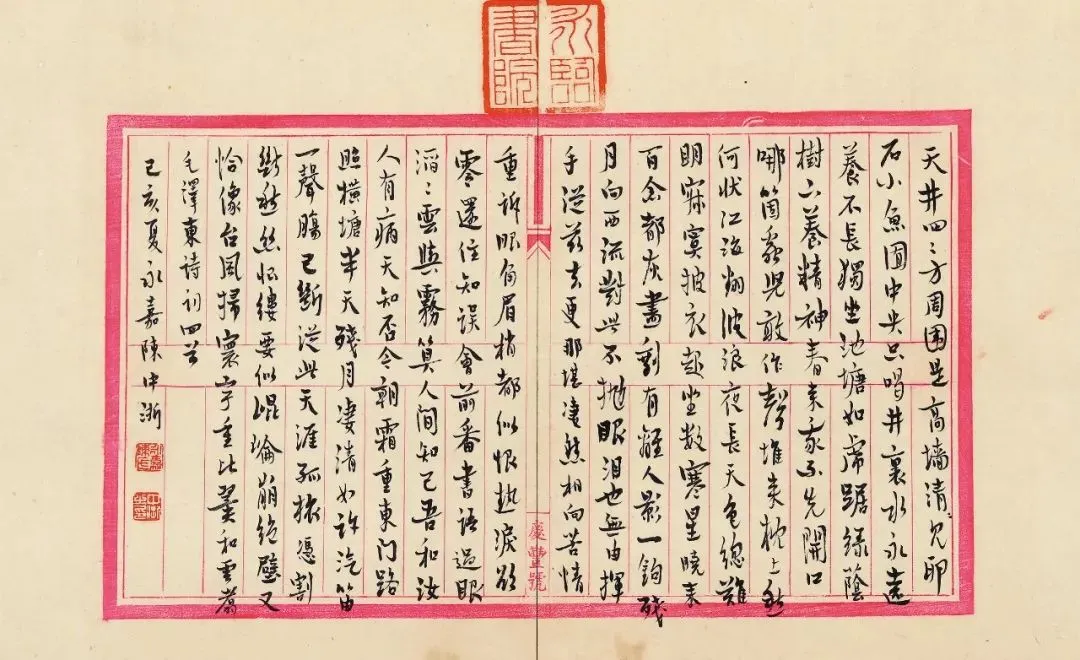 永臨書院
天井四々方周围是高墙清々見卵
石小魚囿中央只喝井裏水永遠
養不長獨坐池塘如虎踞綠蔭
樹下養精神春来我不先開口
哪箇蟲兒敢作聲堆来枕上愁
何狀江海翻波浪夜長天色總難
明寂寞披衣起坐數寒星曉来
百念都灰盡剩有離人影一鉤殘
月向西流對此不抛眼淚也無由揮
手從兹去更那堪凄然相向苦情
重訴眼角眉梢都似恨热淚欲
零還住知誤會前番書語過眼
滔々雲與霧算人间知己吾和汝
人有病天知否今朝霜重東门路
照横塘半天殘月凄清如許汽笛
一聲腸已斷從此天涯孤旅憑割
斷愁丝恨縷要似崐崘崩絕壁又
恰像台風掃寰宇重比翼和雲翥
毛澤東诗词四首
己亥夏永嘉陳中浙
慶豐號